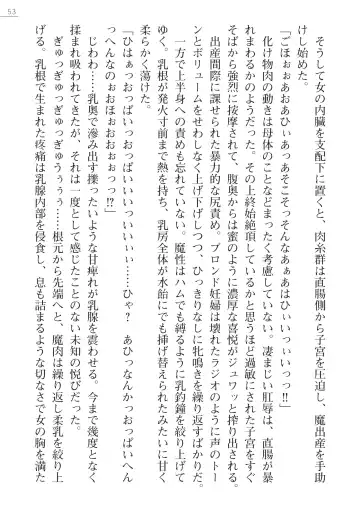 53
そうして女の内臓を支配下に置くと、肉糸群は直腸側から子宮を圧迫し、魔出産を手助
けし始めた。
「ごほぉぉあおあひぃあっあそこそっそんなあぁあはひいっぃいっっ!!」
化け物肉の動きは母体のことなどまったく考慮していない。凄まじい肛辱は、直腸が暴
れまわるかのようだった。その上終始絶頂しているかと思うほど過敏にされた子宮をすぐ
そばから強烈に按摩されて、腹奥からは蜜のように濃厚な喜悦がジュワッと搾り出される。
出産間際に課せられた暴力的な尻責め。ブロンド妊婦は壊れたラジオのように声のトー
ンとボリュームをせわしなく上げ下げしつつ、ひっきりなしに牝鳴きを繰り返すばかりだ。
一方で上半身への責めも忘れていない。魔性はハムでも縛るように乳釣鐘を絞り上げて
ゆく。乳根が発火寸前まで熱を持たされて、乳房全体が水飴にでも挿げ替えられたみたいに甘く
柔らかく蕩けた。
「ひはぁっおっぱいぃおっぱいいいいっいいぃぃ……ひゃ?　あひっなんかっおっぱいへん
っへんなのぉおほぉおおおぉおっっ!?」
じわわ……乳奥で滲み出す擽ったいような甘痺れが乳腺を震わせる。今まで幾度となく
揉まれ吸われてきたが、それは一度として感じたことのない未知の悦びだった。
ぎゅっぎゅっぎゅっぎゅうぅぅ……根元から先端へと、魔肉は繰り返し柔乳を絞り上
げる。乳根で生まれた疼痛は乳腺内部を侵食し、息も詰まるような切なさで女の胸を満た